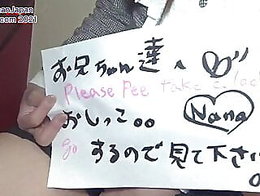 anJapan
.com 2021
お兄ちゃん達へ
Please Pee take a look
おしっこ。。 Nana
go するので見て下さい